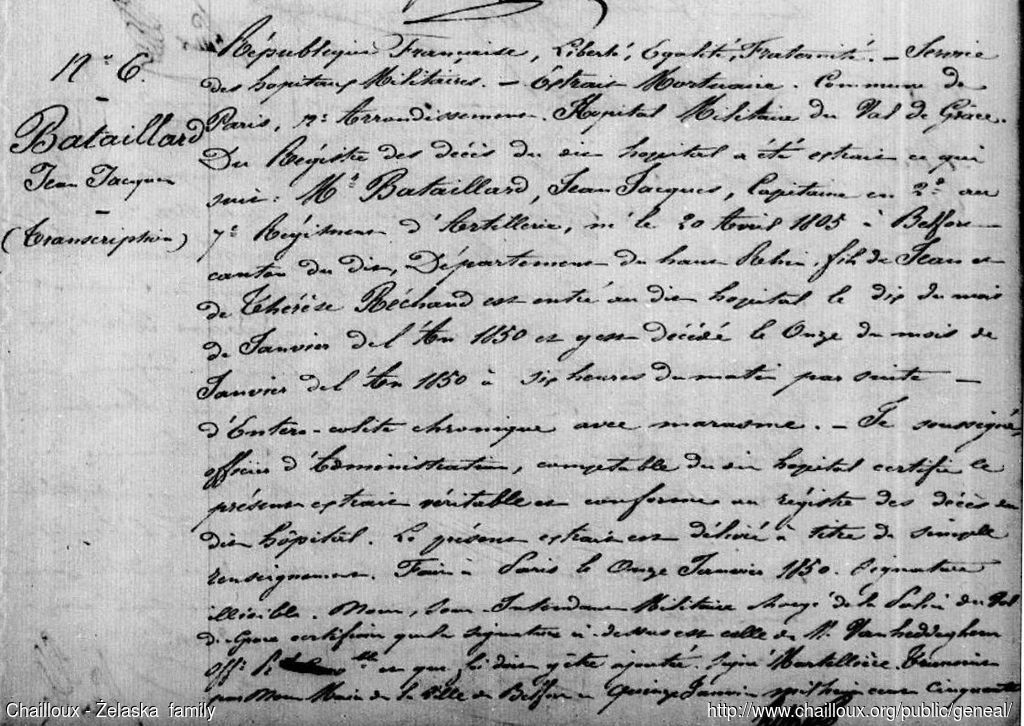 N.° 6.
Bataillard
Jean Jacques
(Transcription)
République Française, Liberté, Egalité, Fraternité. — Service
des hopitaux Militaires. — Extrait Mortuaire. Commune de
Paris, 12e Arrondissement. Hopital Militaire du Val de Grâce.
Du Régistre des décès du dit hopital a été extrait ce qui
suit: Mr. Bataillard, Jean Jacques, Capitaine en 2e au
7e Régiment d'Artillerie, né le 20 Avril 1805 à Belfort
canton du dit, Département du haut Rhin, fils de Jean et
de Thérèse Réchaud est entré au dit hopital le dix du mois
de Janvier de l'An 1850 et y est décédé le Onze du mois de
Janvier de l'An 1850 à six heures du matin par suite —
d'Entero-colite chronique avec marasme. — Je soussigné,
officier d'Administration, comptable du dit hopital certifie le
présent extrait véritable et conforme au régistre des décès du
dit hôpital. Le présent extrait est délivré à titre de simple
renseignement. Fait à Paris le Onze Janvier 1850. Signature
illisible. Nous, Sous Intendant Militaire chargé de la Police du Val
de Grace certifions que la signature ci-dessus est celle de Mr. Vanheddeghem
offr. et que foi doit y être ajoutée. Signé Martellière. Transcrit
par Nous Maire de la ville de Belfort le Quinze Janvier mil huit cent Cinquante
Chailloux - Żelaska family
http://www.chailloux.org/public/geneal/